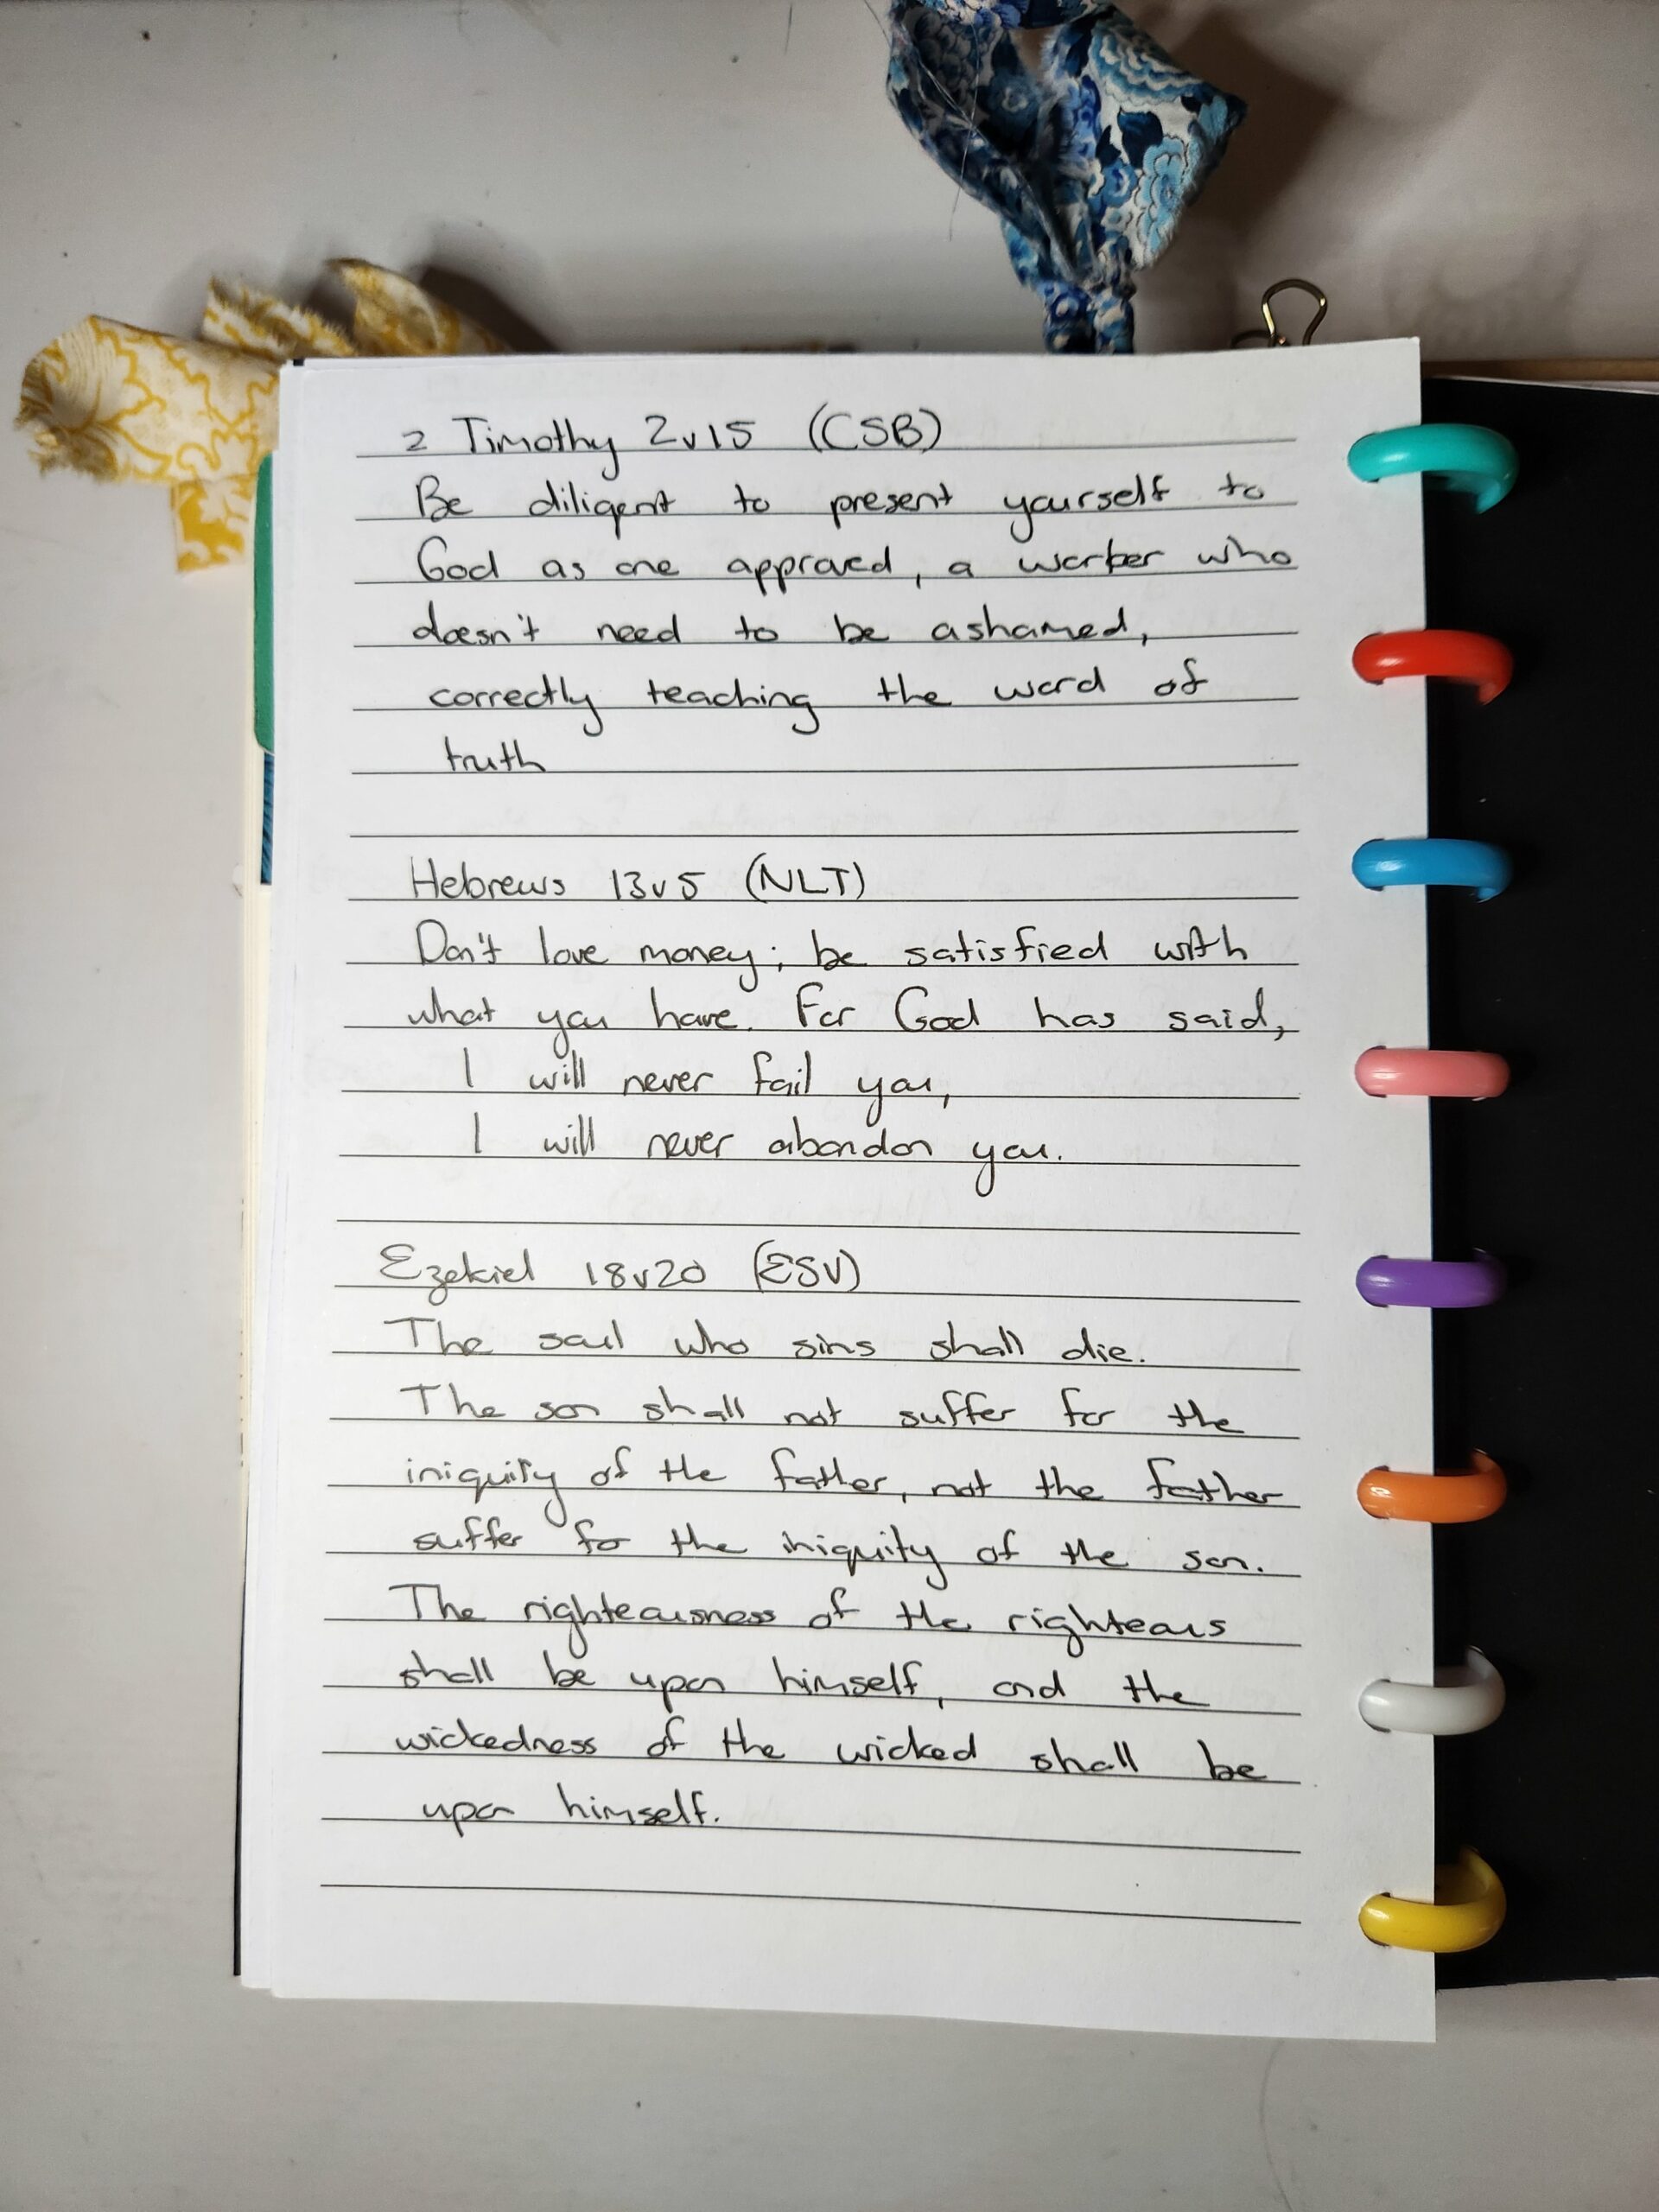 2 Timothy 2v15 (CSB)
Be diligent to present yourself to
God as one approved, a worker who
doesn't need to be ashamed,
correctly teaching the word of
truth
Hebrews 13v5 (NLT)
Don't love money; be satisfied with
what you have. For God has said,
I will never fail you,
I will never abandon you.
Ezekiel 18v20 (ESV)
The soul who sins shall die.
The son shall not suffer for the
iniquity of the father, not the father
suffer for the iniquity of the son.
The righteousness of the righteous
shall be upon himself, and the
wickedness of the wicked shall be
upon himself.